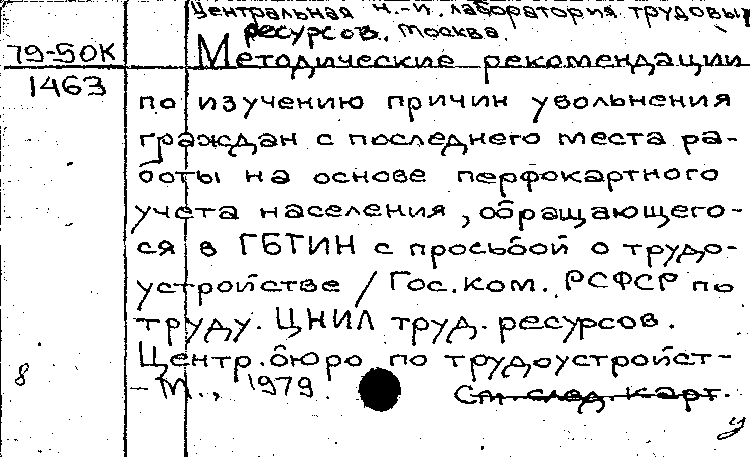 Центральная н.-и. лаборатория трудовых
ресурсов. Москва.
79-50К
Методические рекомендации
1463
по изучению причин увольнения
граждан с последнего места ра-
боты на основе перфокартного
учета населения, обращающего-
ся в ГБТИН с просьбой о трудо-
устройстве / Гос. ком. РСФСР по
труду. ЦНИЛ труд. ресурсов.
Центр. бюро по трудоустройст-
- М., 1979.
См. след. карт.
8
у